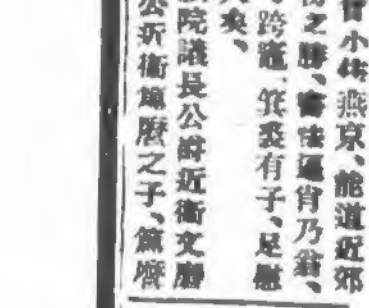 小住燕京、能道近郊
之勝、逼肖乃翁、
跨竈、箕裘有子、足慰
矣、
院議長公爵近衛文麿
公近衛篤麿之子、篤麿